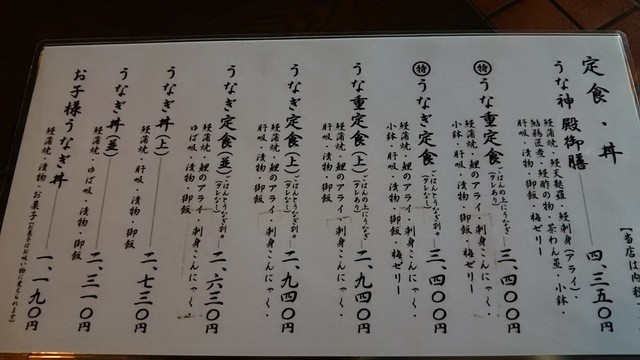 【当店は内税
定食・丼
うな神殿御膳 四、三五〇円
経蒲焼・経天麩羅・経刺身(アライ)・
鮎鶏匠煮・経酢の物・茶わん蒸・小鉢・
肝吸・漬物・御飯・梅ゼリー
特 うな重定食 ごはんの上にうなぎ(タレあり) 三、四〇〇円
経蒲焼・鯉のアライ・刺身こんにゃく・
小鉢・肝吸・漬物・御飯・梅ゼリー
特 うなぎ定食 ごはんとうなぎ別々(タレなし) 三、四〇〇円
経蒲焼・鯉のアライ・刺身こんにゃく・
小鉢・肝吸・漬物・御飯・梅ゼリー
うな重定食(上) ごはんの上にうなぎ(タレあり) 二、九四〇円
経蒲焼・鯉のアライ・刺身こんにゃく・
肝吸・漬物・御飯
うなぎ定食(上) ごはんとうなぎ別々(タレなし) 二、九四〇円
経蒲焼・鯉のアライ・刺身こんにゃく・
肝吸・漬物・御飯
うなぎ定食(並) ごはんとうなぎ別々(タレなし) 二、六三〇円
経蒲焼・鯉のアライ・刺身こんにゃく・
ゆば吸・漬物・御飯
うなぎ丼(上) 二、七三〇円
経蒲焼・肝吸・漬物・御飯
うなぎ丼(並) 二、三一〇円
経蒲焼・ゆば吸・漬物・御飯
お子様うなぎ丼 一、一九〇円
経蒲焼・漬物・お菓子(お菓子はお吸い物に変えられます)